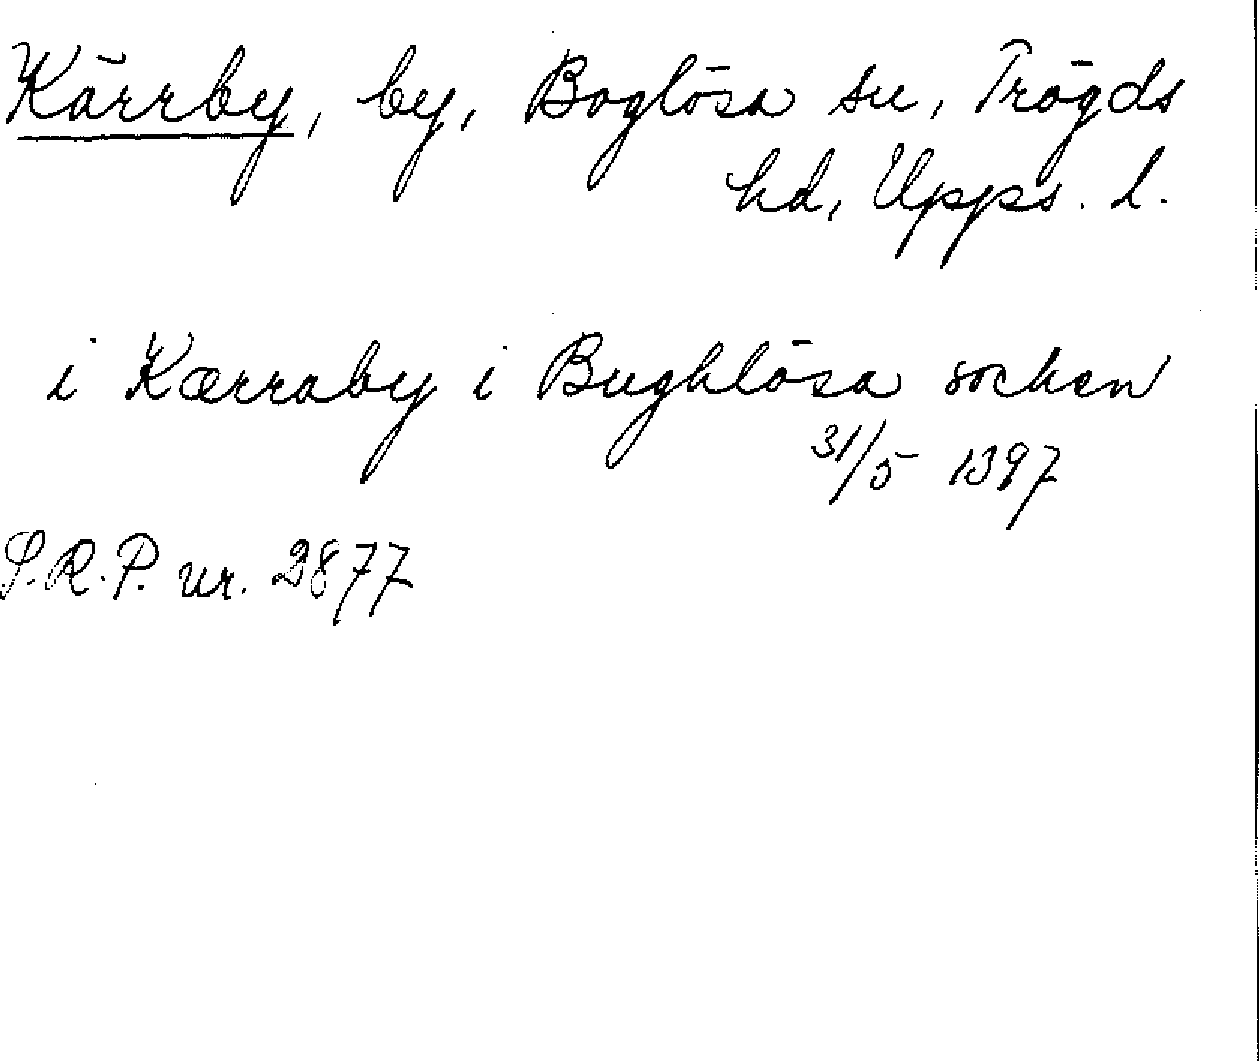 Kärrby, by, Boglösa sn, Trögds
hd, Upps. l.
i Kærraby i Bughlösa sochen
31/5 1397
S.R.P. nr. 2877